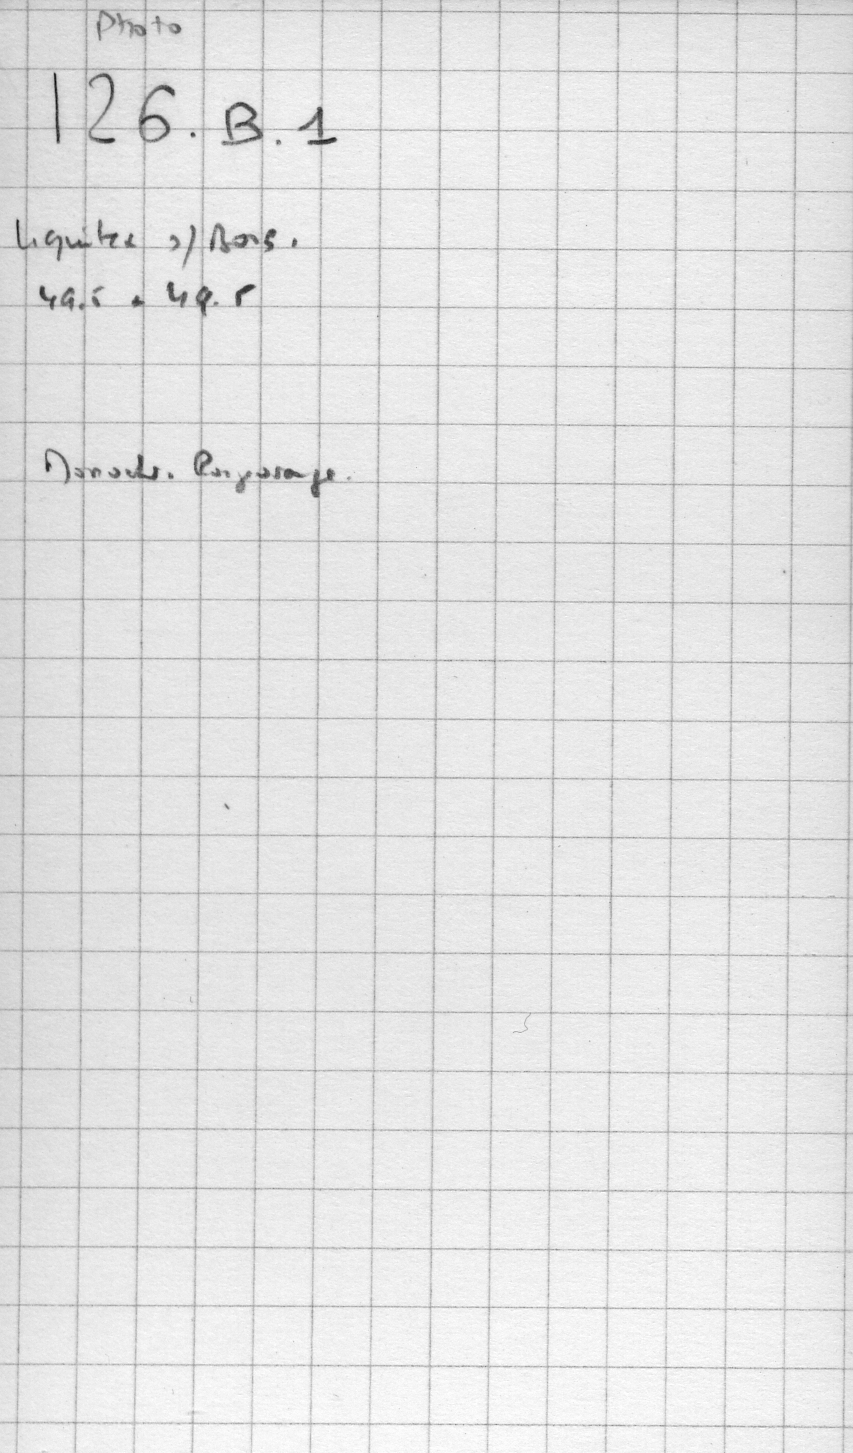 Photo
126.B.1
Liquitex s/Bois.
49.5 . 49.5
Monoch.